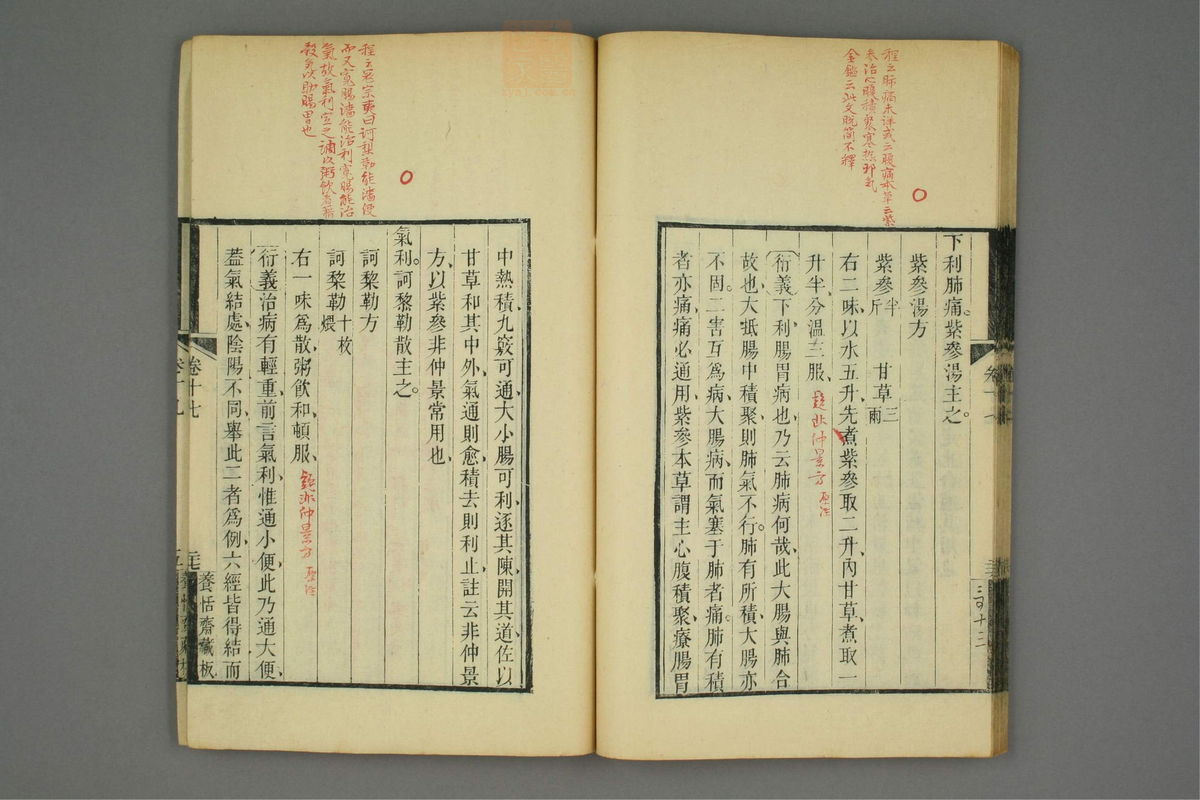 程云肺痛未詳或云腹痛本草云紫
參治心腹積聚寒熱邪氣
金鑑云此文脫簡不釋
下利肺痛紫參湯主之
紫參湯方
紫參半斤 甘草三兩
右二味以水五升先煮紫參取二升內甘草煮取一
升半分溫三服 疑此仲景方 原注
衍義下利腸胃病也乃云肺病何哉此大腸與肺合
故也大抵腸中積聚則肺氣不行肺有所積大腸亦
不固二害互為病大腸病而氣塞于肺者痛肺有積
者亦痛痛必通用紫參本草謂主心腹積聚療腸胃
三百十三
程云寇宗奭曰訶梨勒能濇便
而又寬腸濇能治利寬腸能治
氣故氣利宜之調以粥飲者藉
穀氣以助腸胃也
中熱積九竅可通大小腸可利逐其陳開其道佐以
甘草和其中外氣通則愈積去則利止註云非仲景
方以紫參非仲景常用也
氣利訶黎勒散主之
訶黎勒方
訶黎勒十枚煨
右一味為散粥飲和頓服 疑非仲景方 原注
衍義治病有輕重前言氣利惟通小便此乃通大便
蓋氣結處陰陽不同舉此二者為例六經皆得結而
卷十七
養恬齋藏板